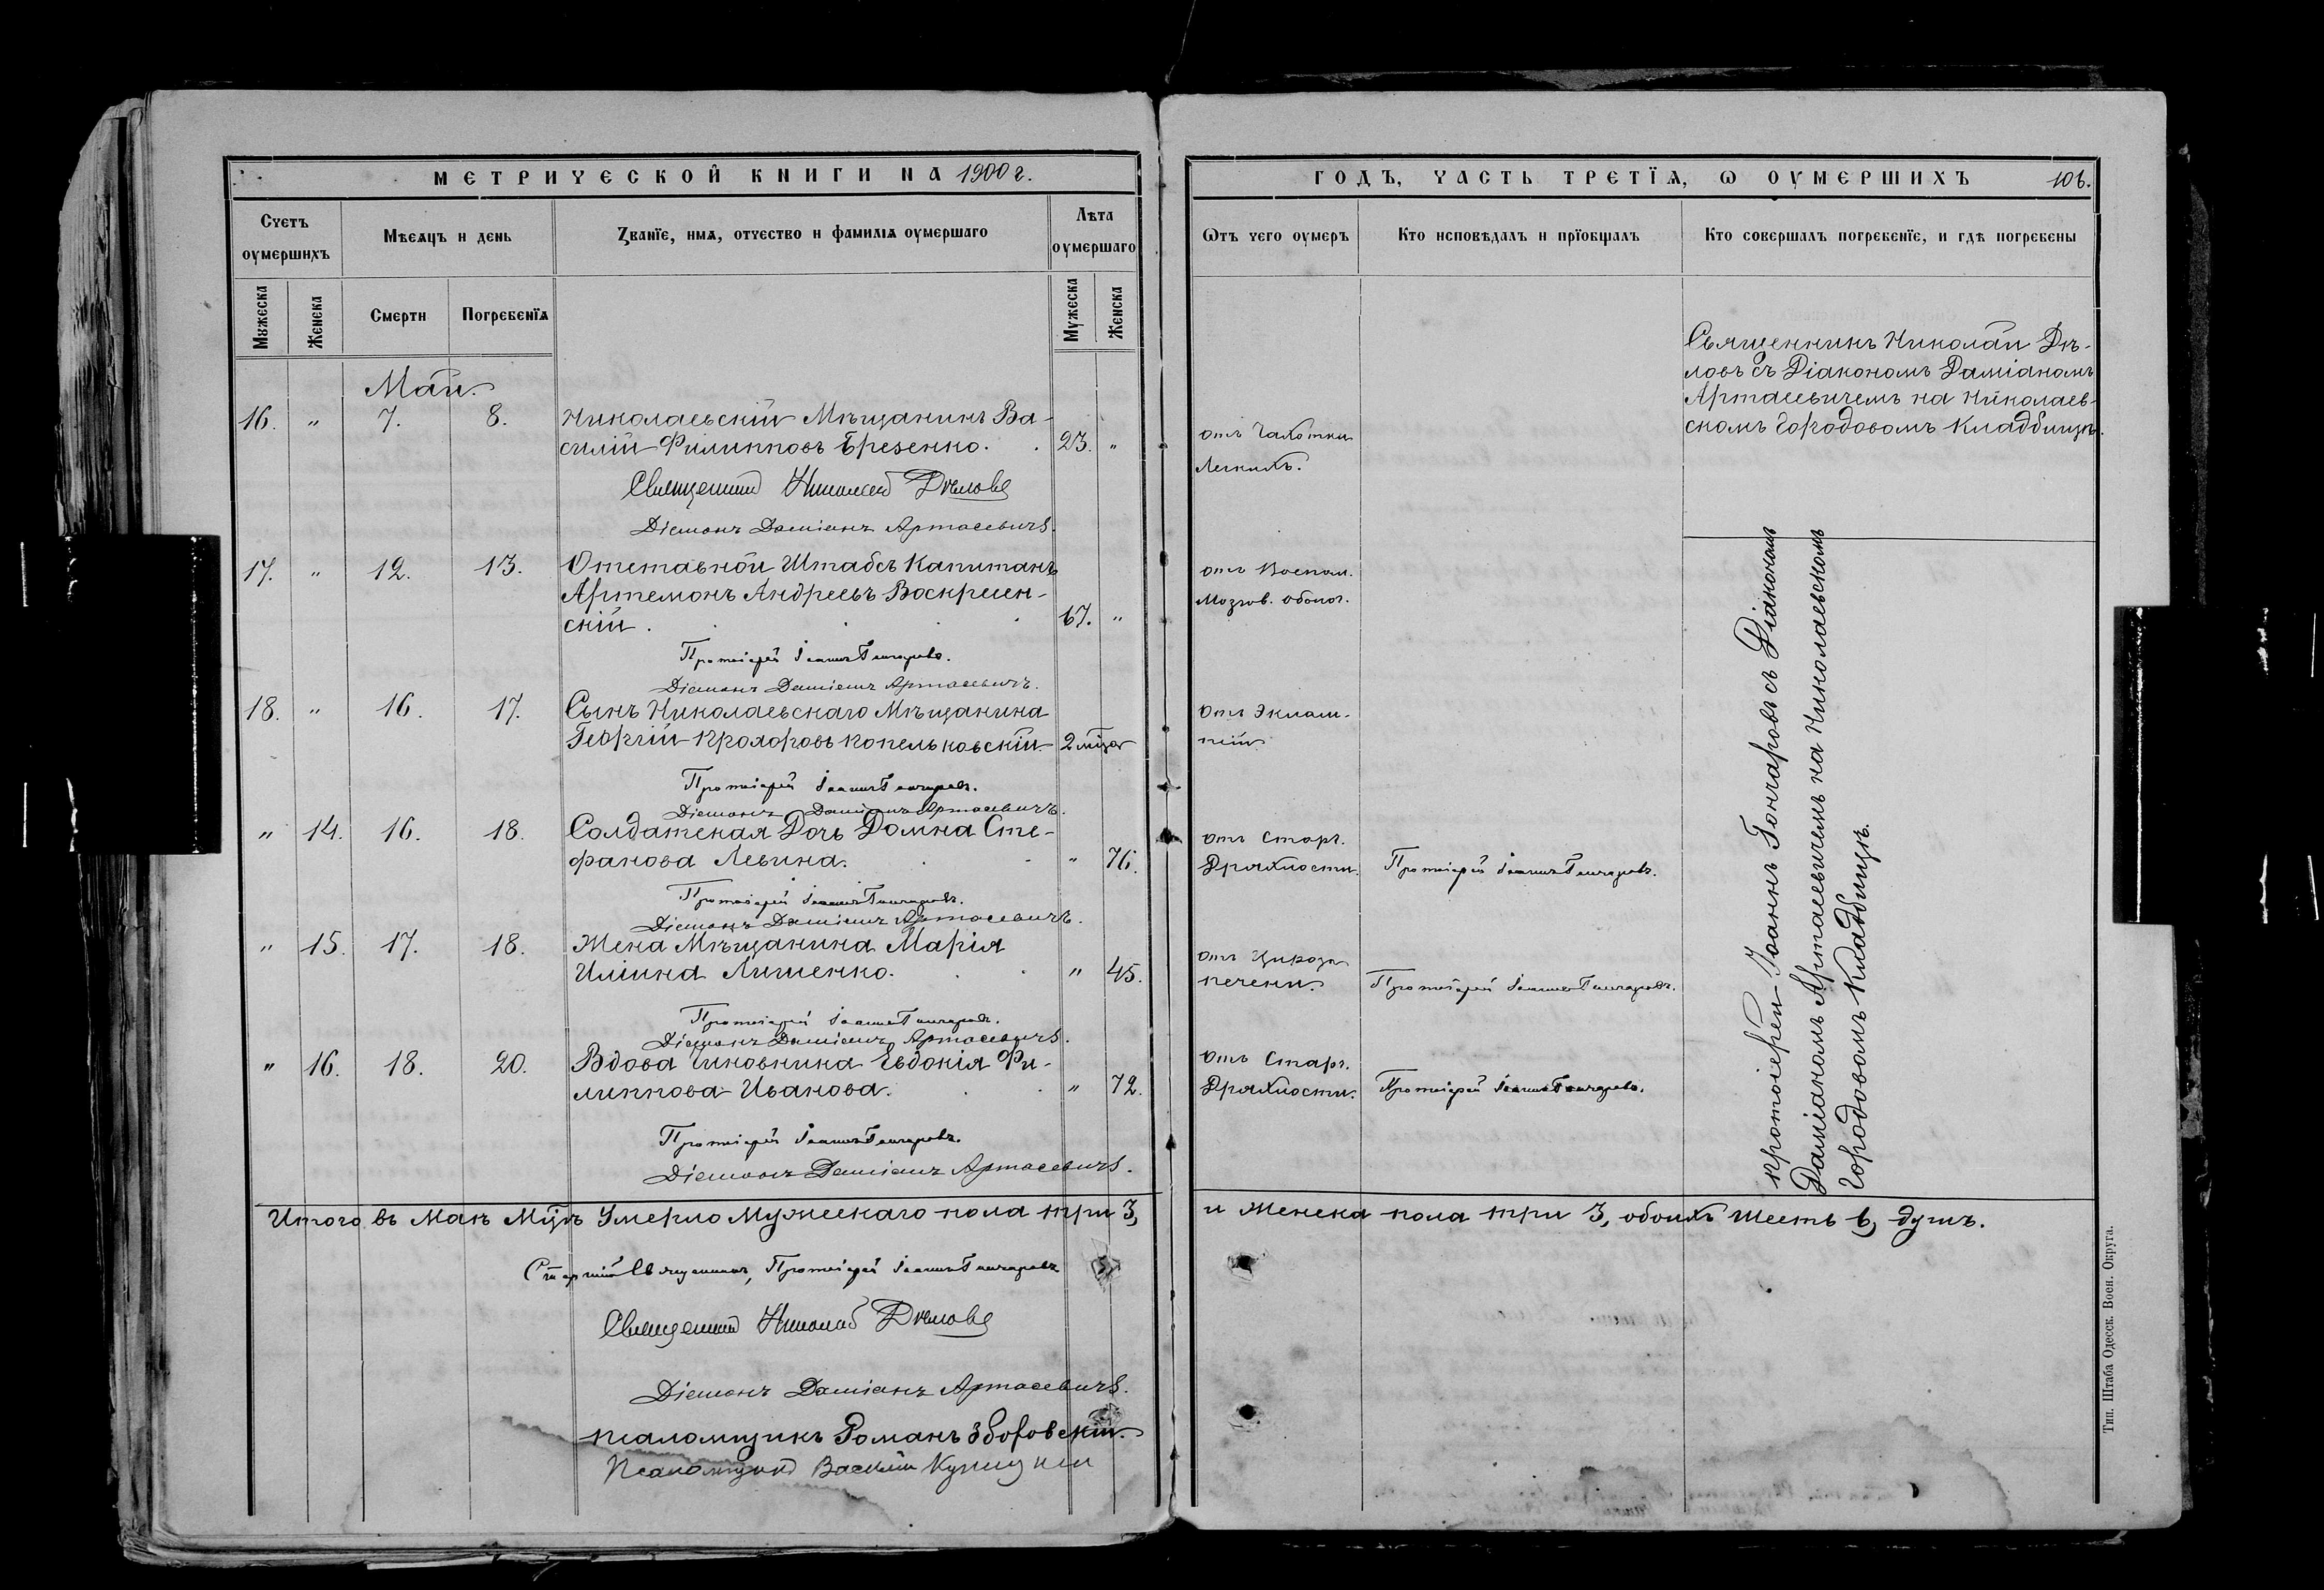 МЕТРИЧЕСКОЙ КНИГИ НА 1900 г.
Счетъ оумершихъ
Мѣсяцъ и день
Званїе, имя, отчество и фамилїя оумершаго
Лѣта оумершаго
Мужеска
Женска
Смерти
Погребенїя
Мужеска
Женска
Май.
16. " 7. 8. Николаевскій Мѣщанинъ Ва-
силій Филипповъ Брезенко. 23. "
Священникъ Николай Дѣловъ
Діаконъ Даміанъ Артасевичъ.
17. " 12. 13. Отставной Штабсъ Капитанъ
Артемонъ Андреевъ Воскресен-
скій. 67. "
Протоіерей Іоаннъ Гончаровъ.
Діаконъ Даміанъ Артасевичъ.
18. " 16. 17. Сынъ Николаевскаго Мѣщанина
Георгій Прохоровъ Копельковскій 2 мѣца
Протоіерей Іоаннъ Гончаровъ.
Діаконъ Даміанъ Артасевичъ.
" 14. 16. 18. Солдатская Дочь Домна Сте-
фанова Левина. " 76.
Протоіерей Іоаннъ Гончаровъ.
Діаконъ Даміанъ Артасевичъ.
" 15. 17. 18. Жена Мѣщанина Марія
Ильина Лишенко. " 45.
Протоіерей Іоаннъ Гончаровъ.
Діаконъ Даміанъ Артасевичъ.
" 16. 18. 20. Вдова Чиновника Евдокія Фи-
липпова Иванова. " 72.
Протоіерей Іоаннъ Гончаровъ.
Діаконъ Даміанъ Артасевичъ.
Итого въ Маѣ Мцѣ Умерло Мужескаго пола три 3,
Старшій Священникъ, Протоіерей Іоаннъ Гончаровъ
Священникъ Николай Дѣловъ
Діаконъ Даміанъ Артасевичъ.
Псаломщикъ Романъ Зборовскій.
Псаломщикъ Василій
ГОДЪ, ЧАСТЬ ТРЕТЇЯ, Ѡ ОУМЕРШИХЪ 106.
Ѿтъ чего оумеръ
Кто исповѣдалъ и прїобщалъ
Кто совершалъ погребенїе, и гдѣ погребены
Священникъ Николай Дѣ-
ловъ съ Діакономъ Даміаномъ
Артасевичемъ на Николаев-
скомъ Городовомъ Кладбищѣ.
отъ Чахотки
Легкихъ.
отъ Воспал.
Мозгов. оболоч.
отъ Эклам-
псіи
отъ Стар.
Дряхлости. Протоіерей Іоаннъ Гончаровъ.
отъ Цироза
печени. Протоіерей Іоаннъ Гончаровъ.
отъ Стар.
Дряхлости. Протоіерей Іоаннъ Гончаровъ.
Протоіерей Іоаннъ Гончаровъ съ Діакономъ
Даміаномъ Артасевичемъ на Николаевскомъ
Городовомъ Кладбищѣ.
и Женска пола три 3, обоихъ Шесть 6, душъ.
Тип. Штаба Одесск. Воен. Округа.